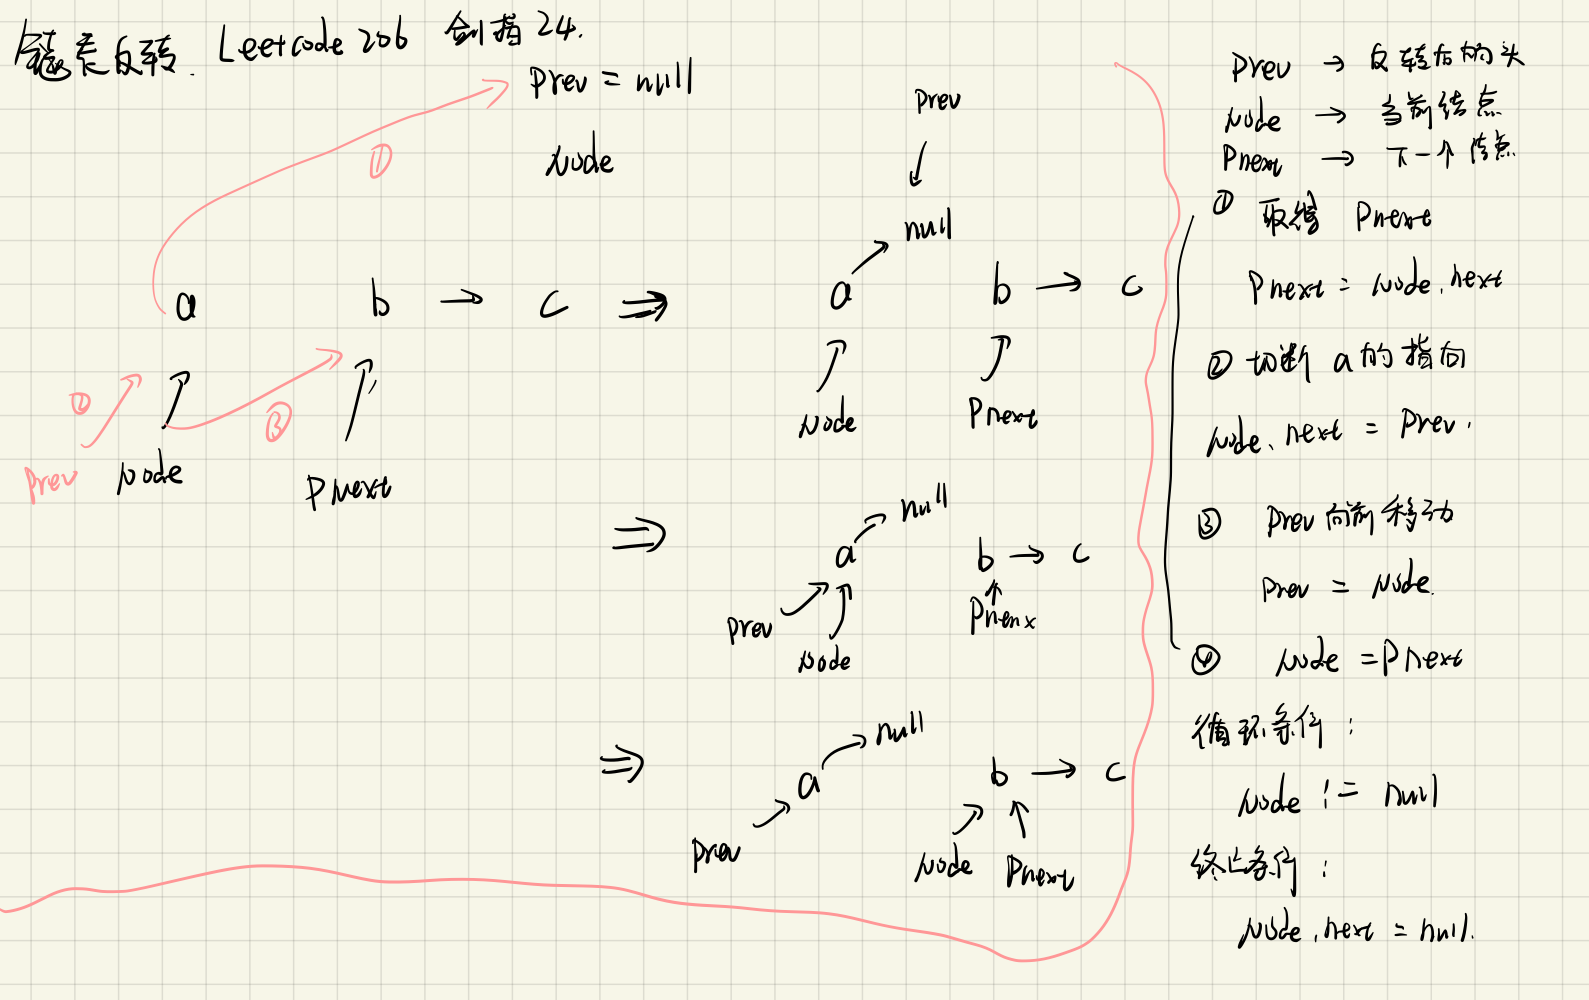 链表反转. Leetcode 206 剑指 24.
prev = null
Node
①
a b → c ⇒
② ③
prev Node Pnext
prev
null
a b → c
Node Pnext
⇒ null
a b → c
prev Node Pnenx
⇒ null
a b → c
prev Node Pnext
prev → 反转后的头
Node → 当前结点
Pnext → 下一个结点
① 取得 Pnext
Pnext = Node.next
② 切断 a的指向
Node.next = prev.
③ prev向前移动
prev = Node.
④ Node = Pnext
循环条件:
Node != null
终止条件:
Node.next = null.